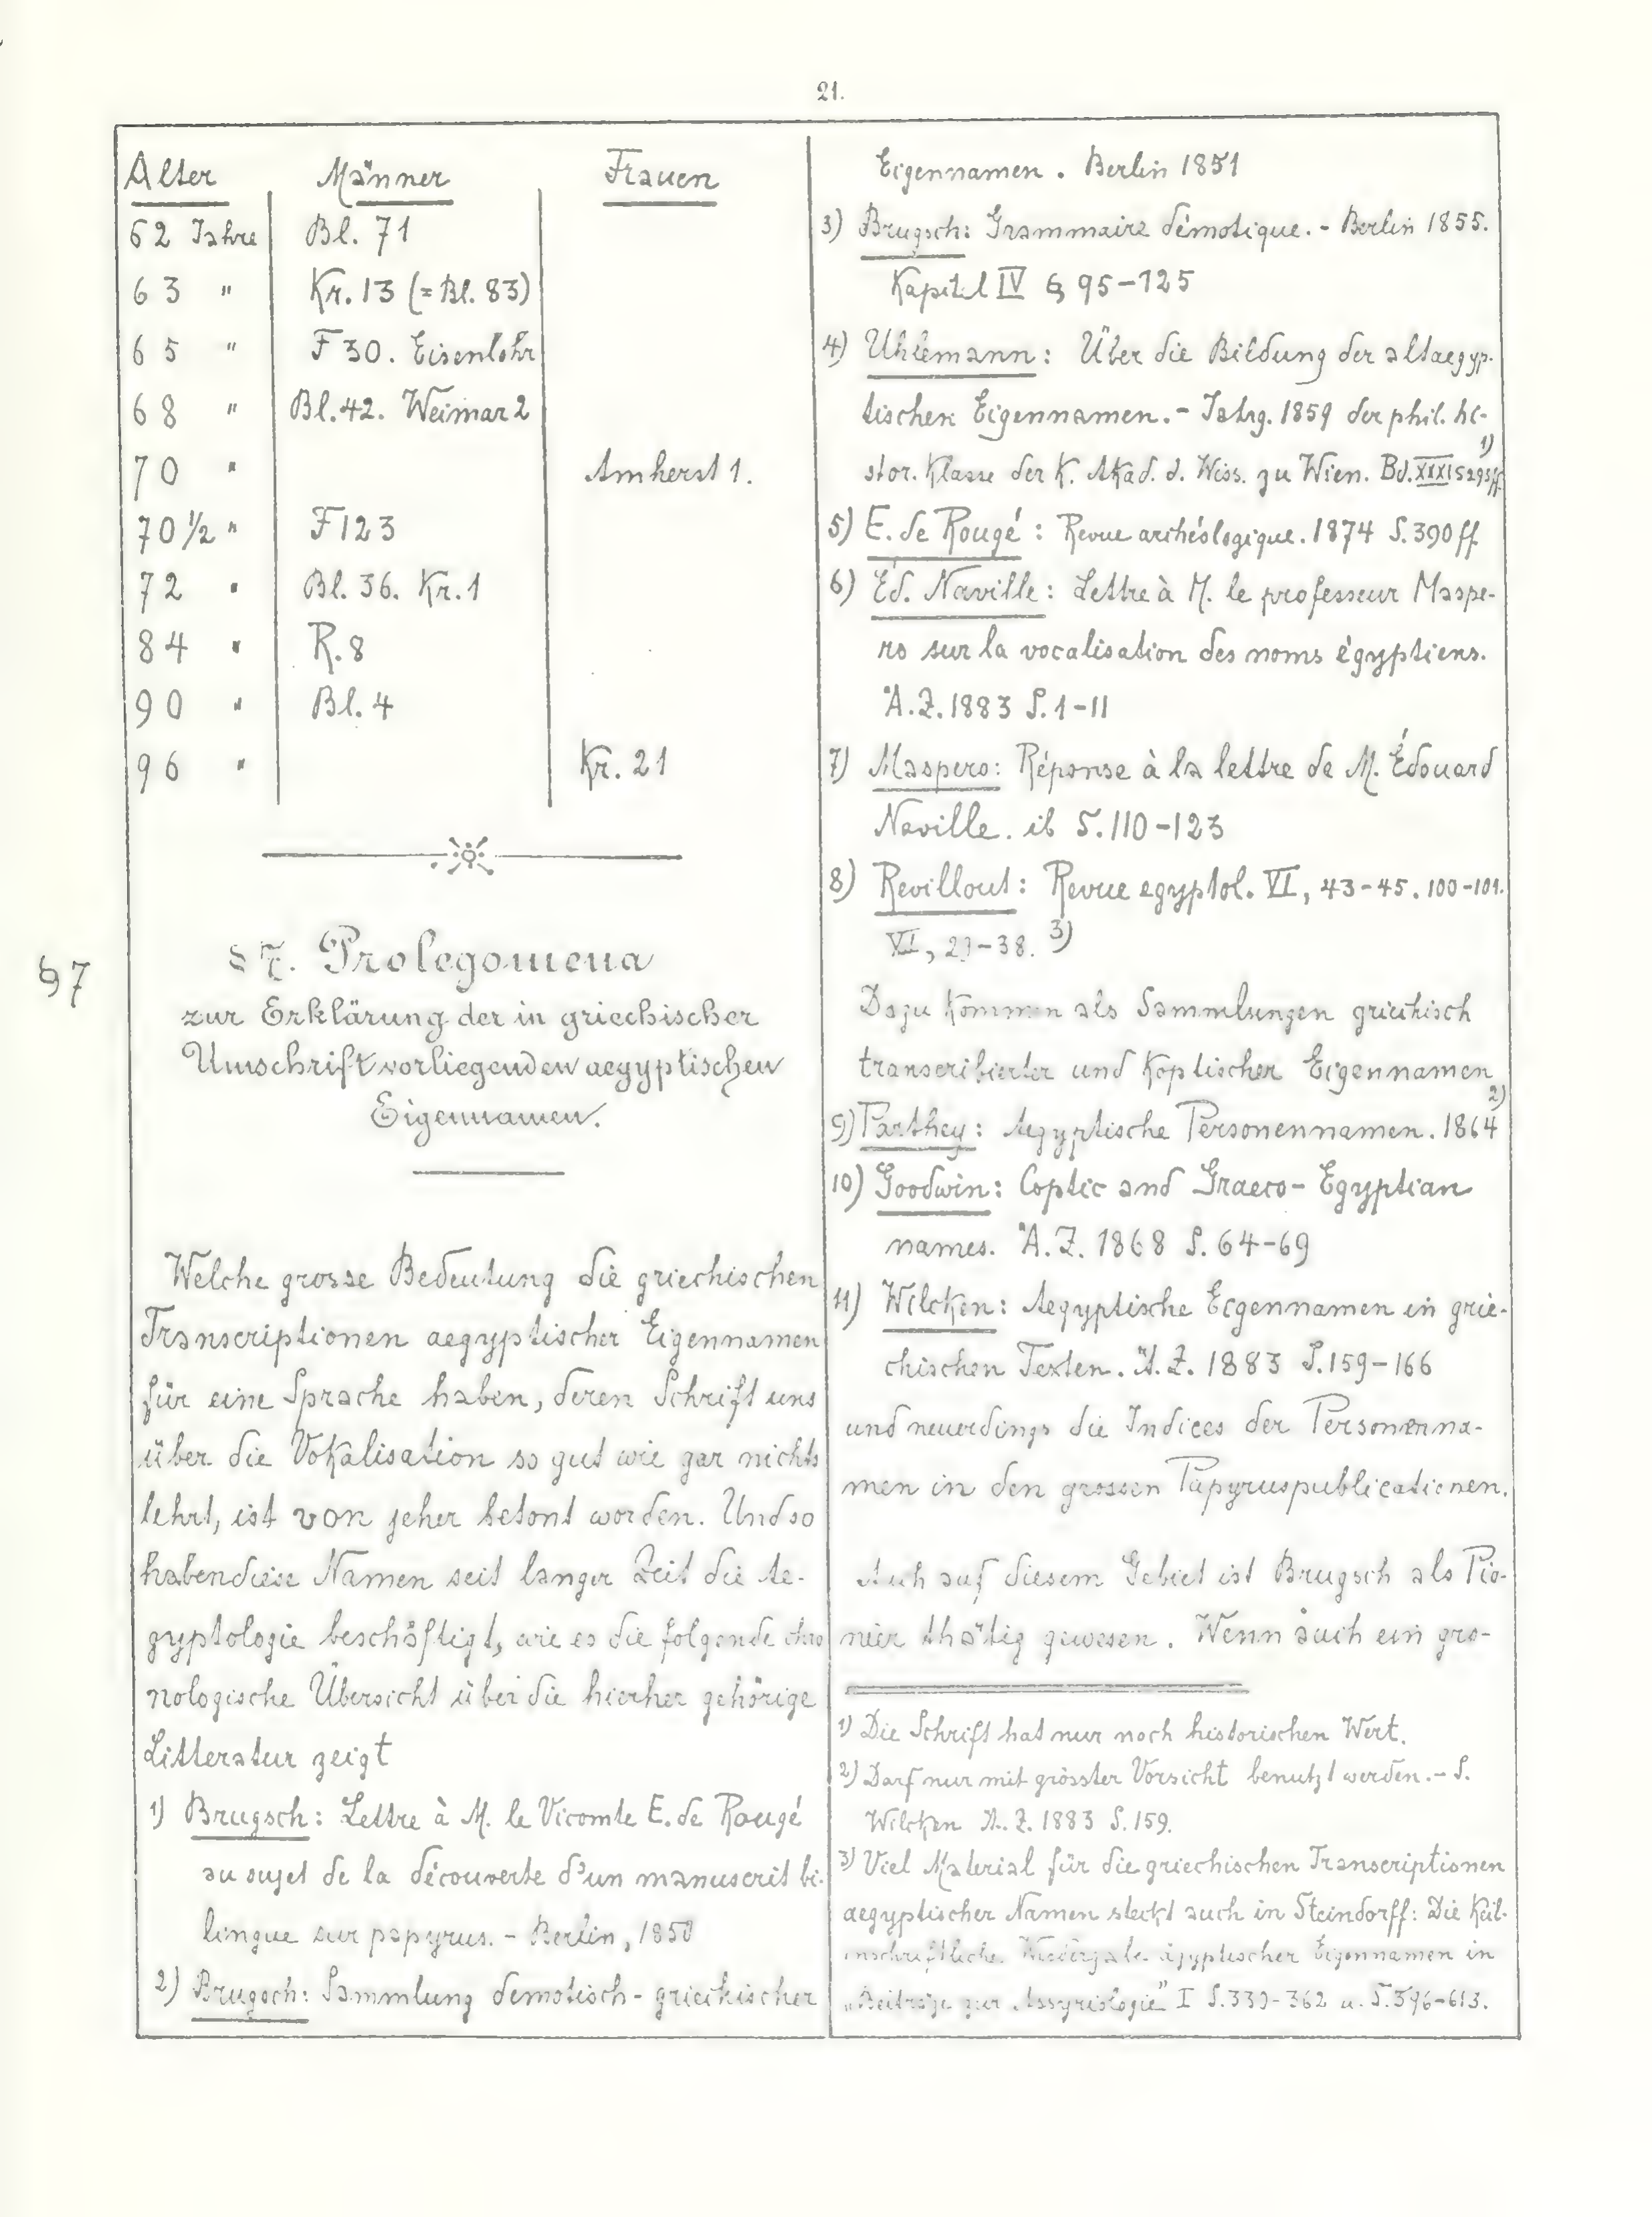 21.
Alter Männer Frauen
62 Jahre Bl. 71
63 " Kr. 13 (= Bl. 83)
65 " F 30. Eisenlohr
68 " Bl. 42. Weimar 2
70 " Amherst 1.
70 1/2 " F 123
72 " Bl. 36. Kr. 1
84 " R. 8
90 " Bl. 4
96 " Kr. 21
§7
§ 7. Prolegomena
zur Erklärung der in griechischer
Umschrift vorliegenden aegyptischen
Eigennamen.
Welche grosse Bedeutung die griechischen
Transcriptionen aegyptischer Eigennamen
für eine Sprache haben, deren Schrift uns
über die Vokalisation so gut wie gar nichts
lehrt, ist von jeher betont worden. Und so
haben diese Namen seit langer Zeit die Ae-
gyptologie beschäftigt, wie es die folgende chro
nologische Übersicht über die hierher gehörige
Litteratur zeigt
1) Brugsch: Lettre à M. le Vicomte E. de Rougé
au sujet de la découverte d'un manuscrit bi-
lingue sur papyrus. - Berlin, 1850
2) Brugsch: Sammlung demotisch-griechischer
Eigennamen. Berlin 1851
3) Brugsch: Grammaire démotique. - Berlin 1855.
Kapitel IV § 95-125
4) Uhlemann: Über die Bildung der altaegyp-
tischen Eigennamen. - Jahrg. 1859 der phil. hi-
stor. Klasse der K. Akad. d. Wiss. zu Wien. Bd. XXXI S 295ff 1)
5) E. de Rougé: Revue archéologique. 1874 S. 390 ff
6) Ed. Naville: Lettre à M. le professeur Maspe-
ro sur la vocalisation des noms égyptiens.
Ä.Z. 1883 S. 1-11
7) Maspero: Réponse à la lettre de M. Édouard
Naville. ib S. 110-123
8) Revillout: Revue egyptol. VI, 43-45. 100-101.
3)
Dazu kommen als Sammlungen griechisch
transcribierter und koptischer Eigennamen
9) Parthey: Aegyptische Personennamen. 1864 2)
10) Goodwin: Coptic and Graeco-Egyptian
names. Ä.Z. 1868 S. 64-69
11) Wilcken: Aegyptische Eigennamen in grie-
chischen Texten. Ä.Z. 1883 S. 159-166
und neuerdings die Indices der Personenna-
men in den grossen Papyruspublicationen.
Auch auf diesem Gebiet ist Brugsch als Pio-
nier thätig gewesen. Wenn auch ein gro-
1) Die Schrift hat nur noch historischen Wert.
2) Darf nur mit grösster Vorsicht benutzt werden. - S.
Wilcken Ä.Z. 1883 S. 159.
3) Viel Material für die griechischen Transcriptionen
aegyptischer Namen steckt auch in Steindorff: Die Keil-
inschriftliche Wiedergabe ägyptischer Eigennamen in
„Beiträge zur Assyriologie" I S. 330-362 u. S. 596-613.